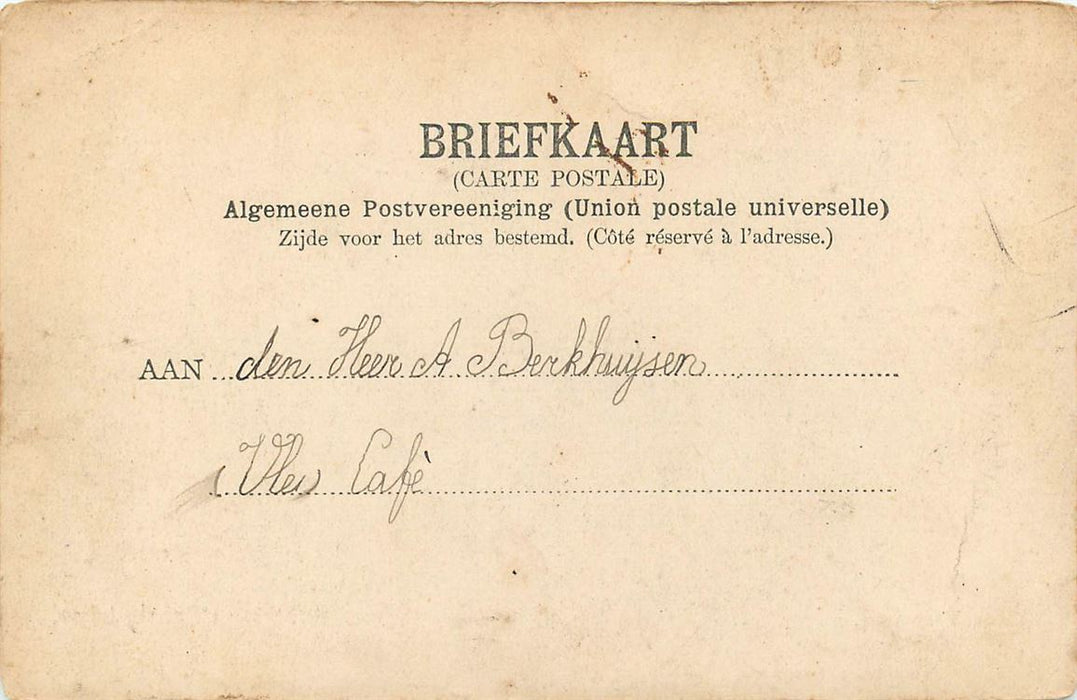 BRIEFKAART
(CARTE POSTALE)
Algemeene Postvereeniging (Union postale universelle)
Zijde voor het adres bestemd. (Côté réservé à l'adresse.)
AAN den Heer A Berkhuijsen
Cafè